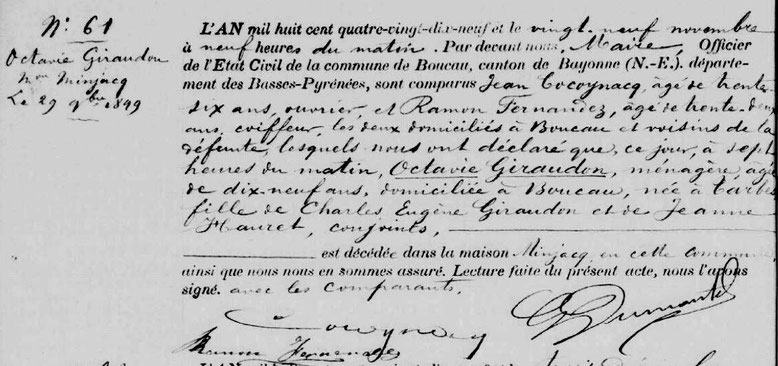 N° 61
Octavie Giraudon
Mon Minjacq
Le 29 9bre 1899
L'AN mil huit cent quatre-vingt-dix-neuf et le vingt-neuf novembre
à neuf heures du matin. Par devant nous, Maire, Officier
de l'Etat Civil de la commune de Boucau, canton de Bayonne (N.-E.), départe-
ment des Basses-Pyrénées, sont comparus Jean Cocoynacq, âgé de trente-
six ans, ouvrier, et Ramon Fernandez, âgé de trente-deux
ans, coiffeur, les deux domiciliés à Boucau et voisins de la
défunte, lesquels nous ont déclaré que, ce jour, à sept
heures du matin, Octavie Giraudon, ménagère, âgée
de dix-neuf ans, domiciliée à Boucau, née à Tarbes
fille de Charles Eugène Giraudon et de Jeanne
Hauret, conjoints,
est décédée dans la maison Minjacq en cette commune,
ainsi que nous nous en sommes assuré. Lecture faite du présent acte, nous l'avons
signé avec les comparants.
Ramon Fernandez
L'AN mil huit cent